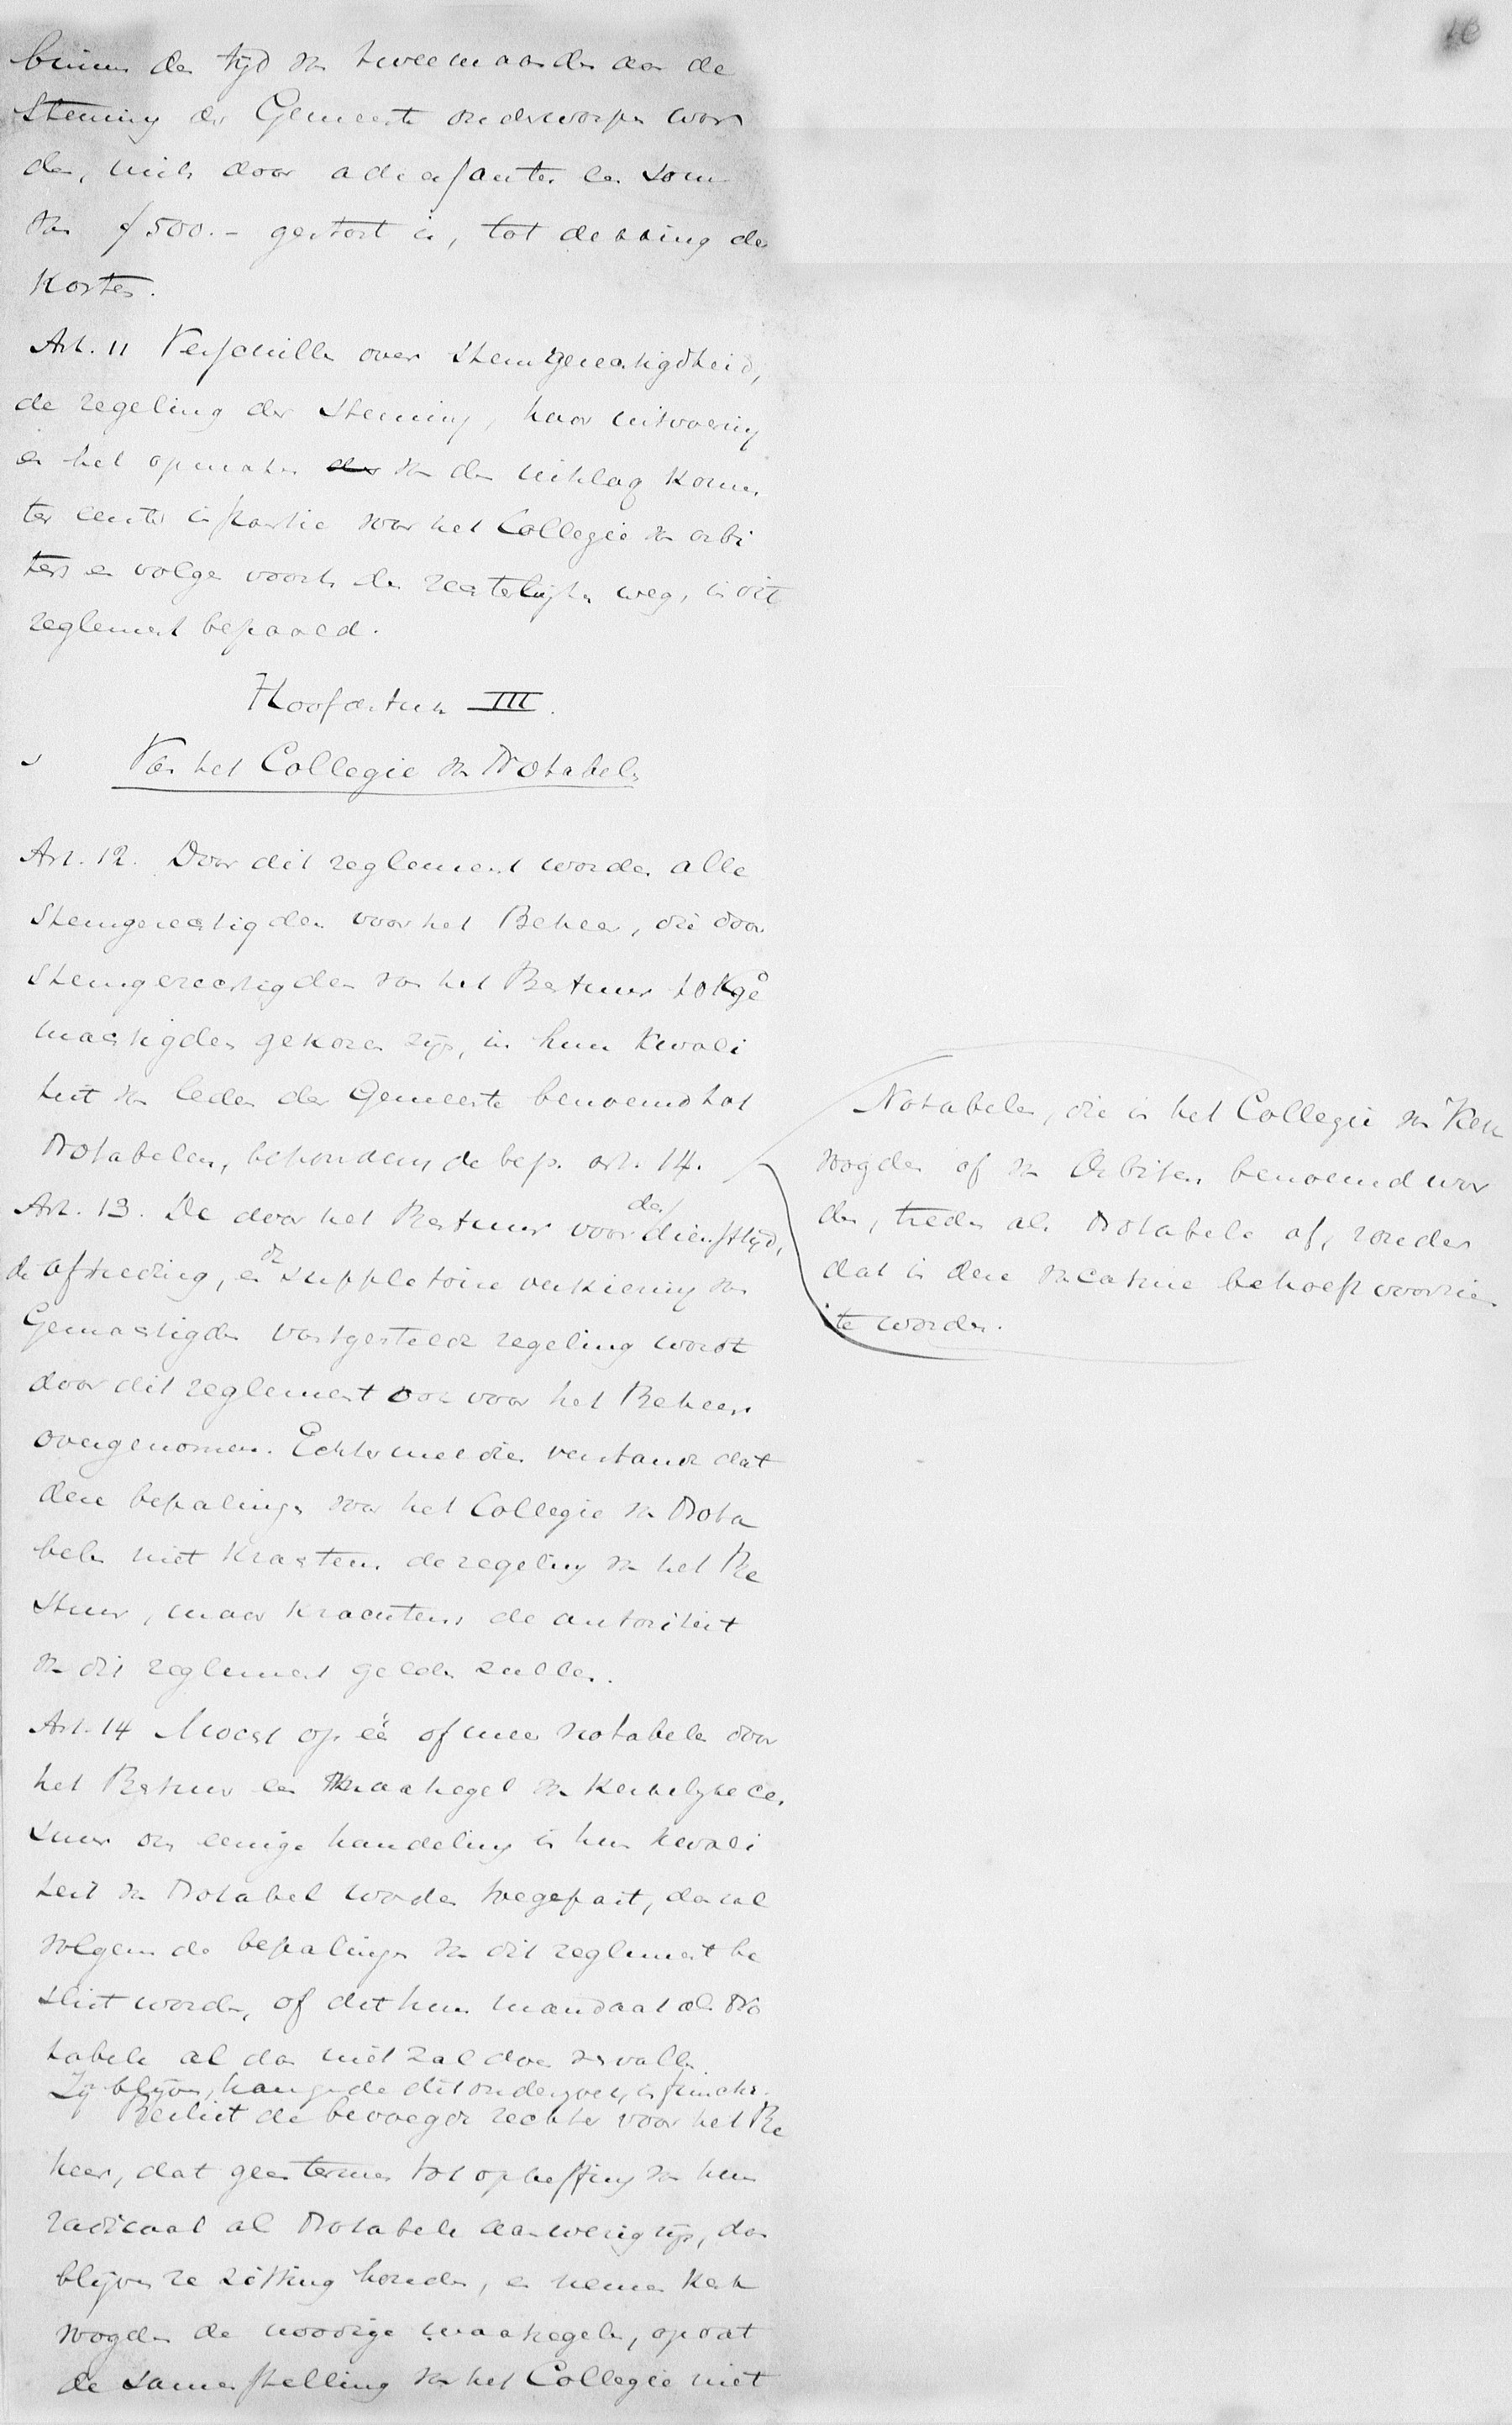 16
binnen den tijd van twee maanden aan de
stemming der Gemeente onderworpen wor
den, mits door adressanten een som
van ƒ 500.- gestort is, tot dekking der
kosten.
Art. 11 Verschillen over stemgerechtigdheid,
de regeling der stemming, haar uitvoering
en het opmaken van den uitslag komen
ter eerste instantie voor het Collegie van arbi
ters en volgen voorts den rechterlijken weg, in dit
reglement bepaald.
Hoofdstuk III.
Van het Collegie van Notabelen
Art. 12. Door dit reglement worden alle
stemgerechtigden voor het Beheer, die door
stemgerechtigden van het Bestuur tot ge
machtigden gekozen zijn, in hun kwali
teit van leden der Gemeente benoemd tot
Notabelen, behoudens de bep. art. 14.
Notabelen, die in het Collegie van Kerk
voogden of van Arbiters benoemd wor
den, treden als Notabele af, zonder
dat in deze vacature behoeft voorzien
te worden.
Art. 13. De door het Bestuur voor den diensttijd,
de aftreding, en de suppletoire verkiezing van
Gemachtigden vastgestelde regeling wordt
door dit reglement ook voor het Beheer
overgenomen. Echter met dien verstande dat
deze bepalingen voor het Collegie van Nota
belen niet krachtens de regeling van het Be
stuur, maar krachtens de autoriteit
van dit reglement gelden zullen.
Art. 14 Mocht op één of meer notabelen door
het Bestuur een maatregel van kerkelijke cen
suur om eenige handeling in hun kwali
teit van Notabel worden toegepast, dan zal
volgens de bepalingen van dit reglement be
slist worden, of dit hun mandaat als No
tabele al dan niet zal doen vervallen.
Zij blijven, hangende dit onderzoek, in functie.
Beslist de bevoegde rechter voor het Be
heer, dat geen termen tot opheffing van hun
radicaal als Notabele aanwezig zijn, dan
blijven ze zitting houden, en nemen Kerk
voogden de noodige maatregelen, opdat
de samenstelling van het Collegie niet